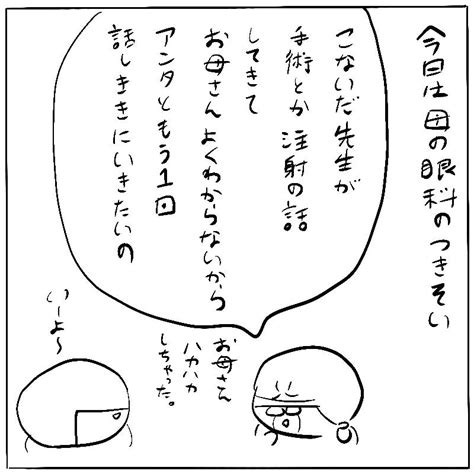 今日は母の眼科のつきそい
こないだ先生が
手術とか注射の話
してきて
お母さんよくわからないから
アンタともう1回
話しききにいきたいの
お母さん
ハカハカ
しちゃった。
いーよ〜